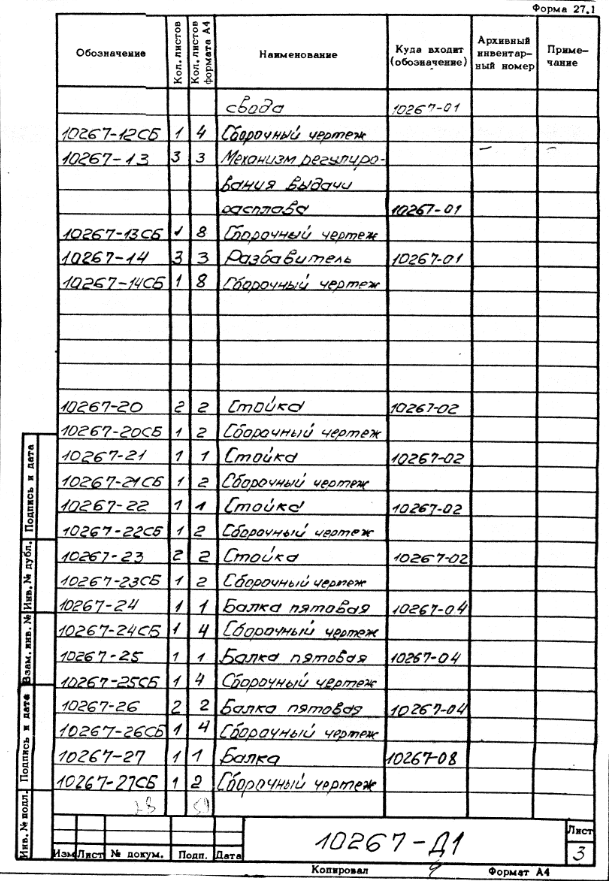 Форма 27.1
Обозначение Кол. листов Кол. листов формата А4 Наименование Куда входит (обозначение) Архивный инвентарный номер Примечание
свода 10267-01
10267-12СБ 1 4 Сборочный чертеж
10267-13 3 3 Механизм регулиро-
вания выдачи
расплава 10267-01
10267-13СБ 1 8 Сборочный чертеж
10267-14 3 3 Разбавитель 10267-01
10267-14СБ 1 8 Сборочный чертеж
10267-20 2 2 Стойка 10267-02
10267-20СБ 1 2 Сборочный чертеж
10267-21 1 1 Стойка 10267-02
10267-21СБ 1 2 Сборочный чертеж
10267-22 1 1 Стойка 10267-02
10267-22СБ 1 2 Сборочный чертеж
10267-23 2 2 Стойка 10267-02
10267-23СБ 1 2 Сборочный чертеж
10267-24 1 1 Балка пятовая 10267-04
10267-24СБ 1 4 Сборочный чертеж
10267-25 1 1 Балка пятовая 10267-04
10267-25СБ 1 4 Сборочный чертеж
10267-26 2 2 Балка пятовая 10267-04
10267-26СБ 1 4 Сборочный чертеж
10267-27 1 1 Балка 10267-08
10267-27СБ 1 2 Сборочный чертеж
28 59
Инв. № подл. Подпись и дата Взам. инв. № Инв. № дубл. Подпись и дата
10267-Д1
Лист
3
Изм Лист № докум. Подп. Дата
Копировал Формат А4